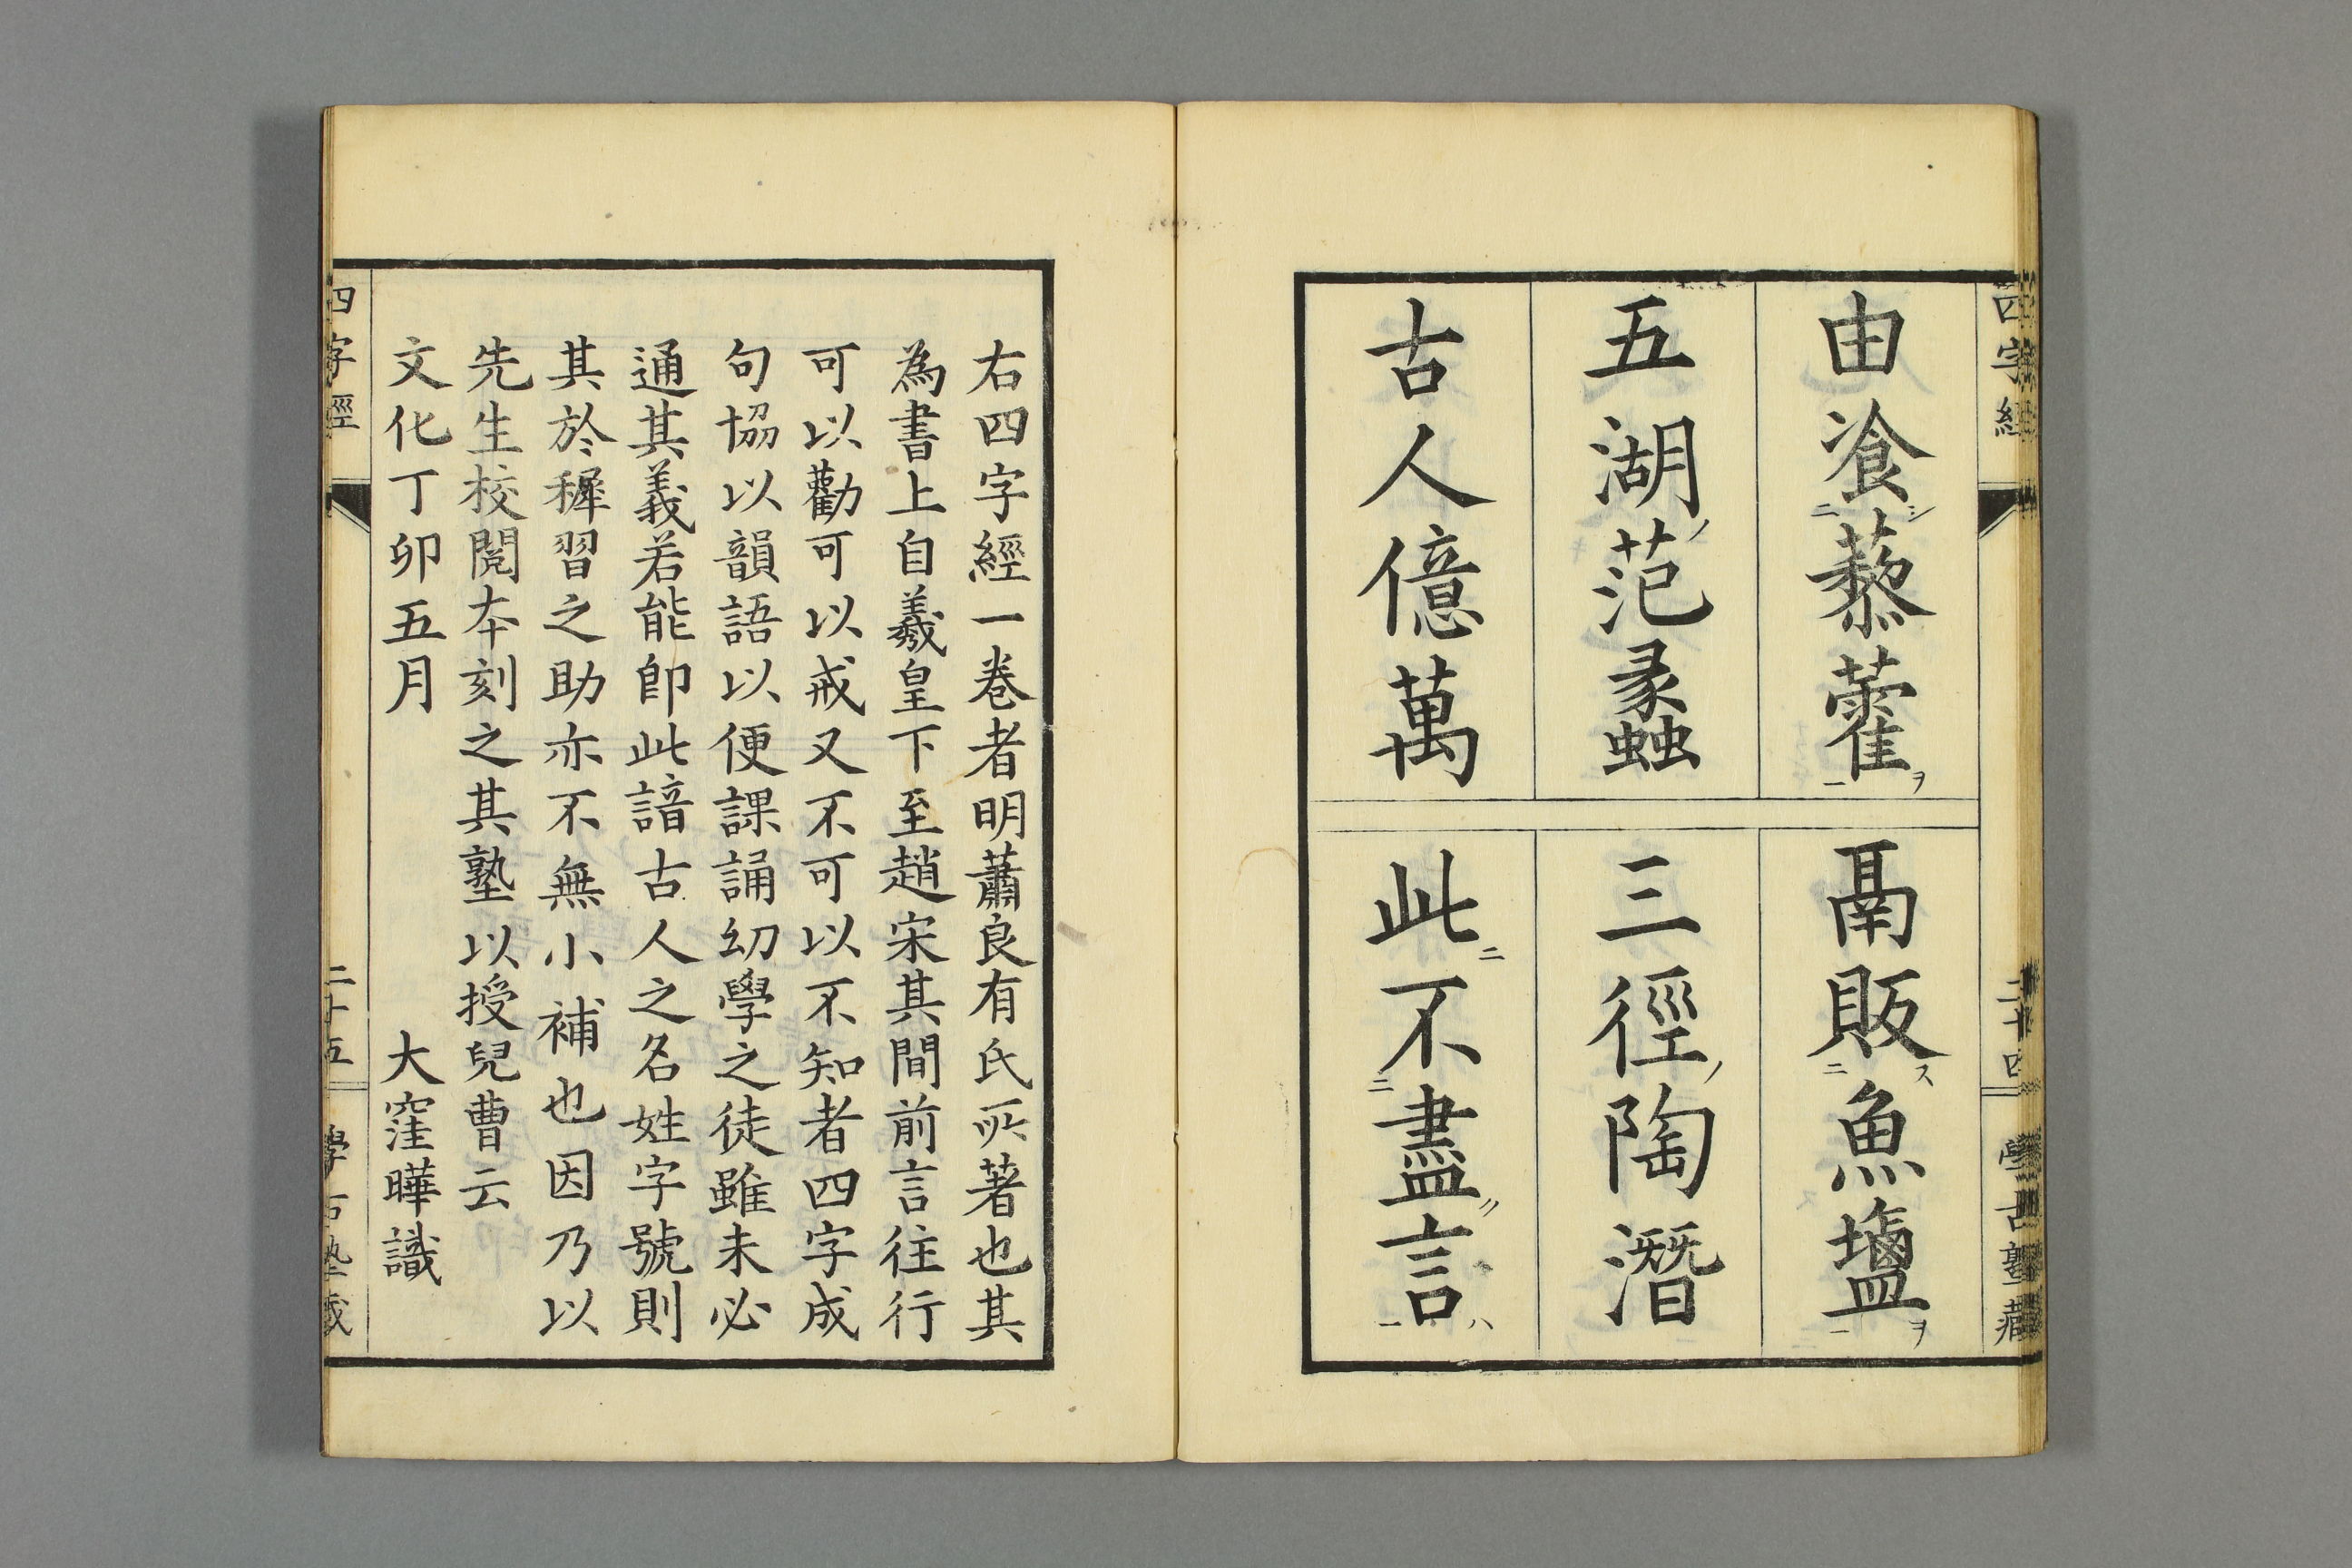 四字經
由飡藜藿
鬲販魚鹽
五湖范蠡
三徑陶潛
古人億萬
此不盡言
二十四
學古塾藏
右四字經一卷者明蕭良有氏所著也其
為書上自羲皇下至趙宋其間前言往行
可以勸可以戒又不可以不知者四字成
句協以韻語以便課誦幼學之徒雖未必
通其義若能即此諳古人之名姓字號則
其於穉習之助亦不無小補也因乃以
先生校閲本刻之其塾以授兒曹云
文化丁卯五月 大窪曄識
四字經
二十五
學古塾藏